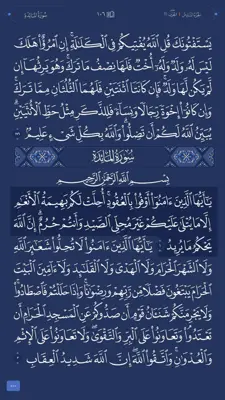 سورة المائدة
١٠٦
يَسْتَفْتُونَكَ قُلِ ٱللَّهُ يُفْتِيكُمْ فِى ٱلْكَلَٰلَةِ إِنِ ٱمْرُؤٌا۟ هَلَكَ
لَيْسَ لَهُۥ وَلَدٌ وَلَهُۥٓ أُخْتٌ فَلَهَا نِصْفُ مَا تَرَكَ وَهُوَ يَرِثُهَآ إِن
لَّمْ يَكُن لَّهَا وَلَدٌ فَإِن كَانَتَا ٱثْنَتَيْنِ فَلَهُمَا ٱلثُّلُثَانِ مِمَّا تَرَكَ
وَإِن كَانُوٓا۟ إِخْوَةً رِّجَالًا وَنِسَآءً فَلِلذَّكَرِ مِثْلُ حَظِّ ٱلْأُنثَيَيْنِ
يُبَيِّنُ ٱللَّهُ لَكُمْ أَن تَضِلُّوا۟ وَٱللَّهُ بِكُلِّ شَىْءٍ عَلِيمٌۢ
سُورَةُ المَائـِدَةِ
بِسْمِ ٱللَّهِ ٱلرَّحْمَٰنِ ٱلرَّحِيمِ
يَٰٓأَيُّهَا ٱلَّذِينَ ءَامَنُوٓا۟ أَوْفُوا۟ بِٱلْعُقُودِ أُحِلَّتْ لَكُم بَهِيمَةُ ٱلْأَنْعَٰمِ
إِلَّا مَا يُتْلَىٰ عَلَيْكُمْ غَيْرَ مُحِلِّى ٱلصَّيْدِ وَأَنتُمْ حُرُمٌ إِنَّ ٱللَّهَ
يَحْكُمُ مَا يُرِيدُ يَٰٓأَيُّهَا ٱلَّذِينَ ءَامَنُوا۟ لَا تُحِلُّوا۟ شَعَٰٓئِرَ ٱللَّهِ
وَلَا ٱلشَّهْرَ ٱلْحَرَامَ وَلَا ٱلْهَدْىَ وَلَا ٱلْقَلَٰٓئِدَ وَلَآ ءَآمِّينَ ٱلْبَيْتَ
ٱلْحَرَامَ يَبْتَغُونَ فَضْلًا مِّن رَّبِّهِمْ وَرِضْوَٰنًا وَإِذَا حَلَلْتُمْ فَٱصْطَادُوا۟
وَلَا يَجْرِمَنَّكُمْ شَنَـَٔانُ قَوْمٍ أَن صَدُّوكُمْ عَنِ ٱلْمَسْجِدِ ٱلْحَرَامِ أَن
تَعْتَدُوا۟ وَتَعَاوَنُوا۟ عَلَى ٱلْبِرِّ وَٱلتَّقْوَىٰ وَلَا تَعَاوَنُوا۟ عَلَى ٱلْإِثْمِ
وَٱلْعُدْوَٰنِ وَٱتَّقُوا۟ ٱللَّهَ إِنَّ ٱللَّهَ شَدِيدُ ٱلْعِقَابِ